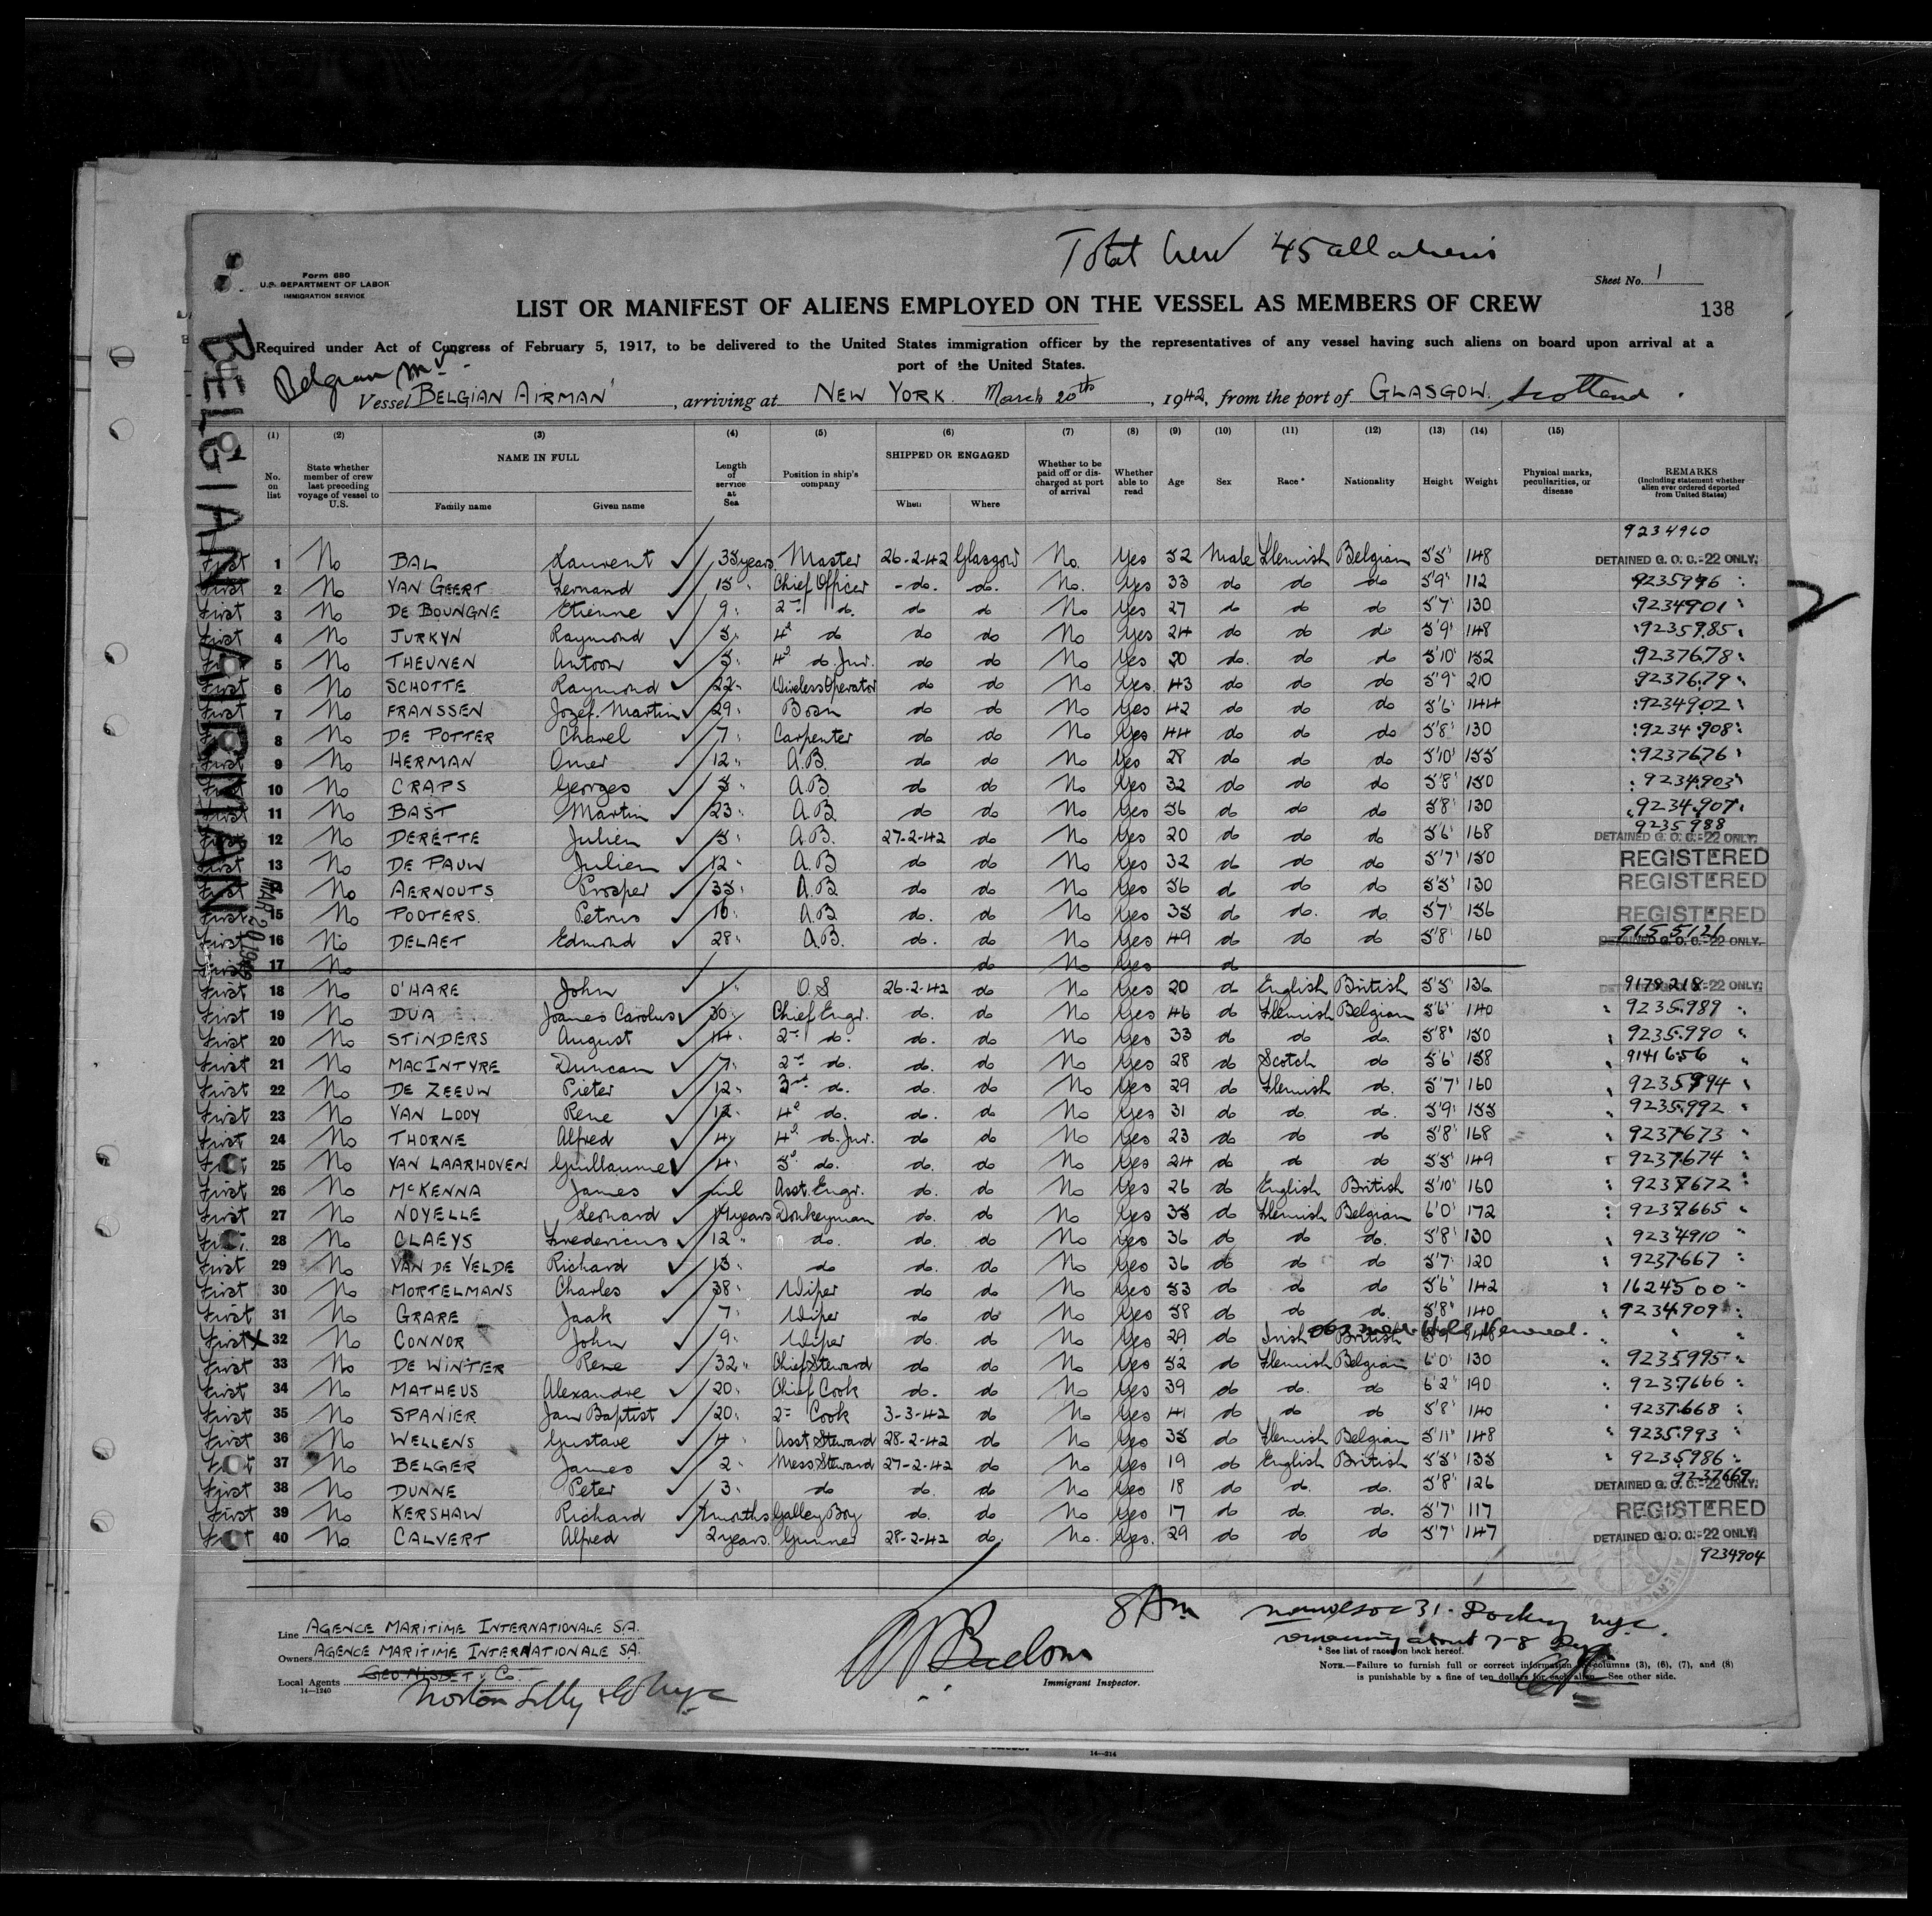 Total Crew 45 all aliens
Form 680
U.S. DEPARTMENT OF LABOR
IMMIGRATION SERVICE
Sheet No. 1
LIST OR MANIFEST OF ALIENS EMPLOYED ON THE VESSEL AS MEMBERS OF CREW
138
Required under Act of Congress of February 5, 1917, to be delivered to the United States immigration officer by the representatives of any vessel having such aliens on board upon arrival at a
port of the United States.
Belgian MV.
Vessel BELGIAN AIRMAN, arriving at NEW YORK. March 20th, 1942, from the port of GLASGOW, Scotland.
BELGIAN AIRMAN
MAR 20 1942
(1) (2) (3) (4) (5) (6) (7) (8) (9) (10) (11) (12) (13) (14) (15)
No. on list State whether member of crew last preceding voyage of vessel to U.S. NAME IN FULL Family name Given name Length of service at Sea Position in ship's company SHIPPED OR ENGAGED When Where Whether to be paid off or discharged at port of arrival Whether able to read Age Sex Race* Nationality Height Weight Physical marks, peculiarities, or disease REMARKS (Including statement whether alien ever ordered deported from United States)
9234960
First 1 No BAL Laurent 35 years Master 26-2-42 Glasgow No. Yes 52 Male Flemish Belgian 5'5" 148 DETAINED G. O. C.-22 ONLY.
First 2 No VAN GEERT Fernand 15 " Chief Officer -do. do. No. Yes 33 do do do 5'9" 112 9235996
First 3 No DE BOUNGNE Etienne 9 " 2nd do. do do No Yes 27 do do do 5'7" 130 9234901
First 4 No JURKYN Raymond 5 " 4th do do do No Yes 24 do do do 5'9" 148 9235985
First 5 No THEUNEN Antoon 5 " 4th do. Jur. do do No Yes 20 do. do do 5'10" 152 9237678
First 6 No SCHOTTE Raymond 22 " Wireless Operator do do No Yes. 43 do do do 5'9" 210 9237679
First 7 No FRANSSEN Jozef. Martin 29 " Bosn do do No Yes 42 do do do 5'6" 144 9234902
First 8 No DE POTTER Charel 7 " Carpenter do do No Yes 44 do do do 5'8" 130 9234908
First 9 No HERMAN Omer 12 " A.B. do do No Yes 28 do do do 5'10" 155 9237676
First 10 No CRAPS Georges 5 " A.B. do do No Yes 32 do do do 5'8" 150 9234903
First 11 No BAST Martin 23 " A.B. do do No Yes 56 do do do 5'8" 130 9234907
9235988
First 12 No DERETTE Julien 5 " A.B. 27-2-42 do No Yes 20 do do do 5'6" 168 DETAINED G. O. C.-22 ONLY.
First 13 No DE PAUW Julien 12 " A.B do do No Yes 32 do do do 5'7" 150 REGISTERED
First 14 No AERNOUTS Prosper 35 " A.B do do No Yes 56 do do do 5'5" 130 REGISTERED
First 15 No POOTERS. Petrus 16 " A.B do. do No Yes 35 do do. do. 5'7" 156 REGISTERED
First 16 No DELAET Edmond 28 " A.B. do. do No Yes 49 do do do 5'8" 160 9655121 DETAINED G. O. C.-22 ONLY.
First 17 No do No Yes do
First 18 No O'HARE John 1 " O.S 26-2-42 do No Yes 20 do English British 5'5" 136 9178218 DETAINED G. O. C.-22 ONLY.
First 19 No DUA Joanes Carolus 30 " Chief Engr. do. do No Yes 46 do Flemish Belgian 5'6" 140 9235989
First 20 No STINDERS August 14 " 2nd do. do. do. No Yes 33 do do do. 5'8" 150 9235990
First 21 No MACINTYRE Duncan 7 " 2nd do. do. do. No Yes 28 do Scotch do 5'6" 158 9141656
First 22 No DE ZEEUW Pieter 12 " 3rd do. do. do. No Yes 29 do Flemish do. 5'7" 160 9235994
First 23 No VAN LOOY Rene 12 " 4th do. do. do No Yes 31 do do. do. 5'9" 155 9235992
First 24 No THORNE Alfred 4 " 4th do. Jur. do do No Yes 23 do do do 5'8" 168 9237673
First 25 No VAN LAARHOVEN Guillaume 4 " 5th do. do. do No Yes 24 do do do 5'5" 149 9237674
First 26 No McKENNA James nil Asst. Engr. do. do No Yes 26 do English British 5'10" 160 9237672
First 27 No NOYELLE Leonard 14 years Donkeyman do. do. No Yes 35 do Flemish Belgian 6'0" 172 9237665
First 28 No CLAEYS Fredericus 12 " do. do. do No Yes 36 do do do. 5'8" 130 9234910
First 29 No VAN DE VELDE Richard 15 " do do. do No Yes 36 do do do 5'7" 120 9237667
First 30 No MORTELMANS Charles 38 " Wiper do do No Yes 53 do do do 5'6" 142 1624500
First 31 No GRARE Jaak 7 " Wiper do do No Yes 58 do do do. 5'8" 140 9234909
First X 32 No CONNOR John 9 " Wiper do. do No Yes 29 do Irish British 148
First 33 No DE WINTER Rene 32 " Chief Steward do do No Yes 52 do Flemish Belgian 6'0" 130 9235995
First 34 No MATHEUS Alexandre 20 " Chief Cook do. do No Yes 39 do do. do 6'2" 190 9237666
First 35 No SPANIER Jan Baptist 20 " 2nd Cook 3-3-42 do No Yes 41 do do do 5'8" 140 9237668
First 36 No WELLENS Gustave 4 " Asst Steward 28-2-42 do No Yes 35 do Flemish Belgian 5'11" 148 9235993
First 37 No BELGER James 2 " Mess Steward 27-2-42 do No Yes 19 do English British 5'5" 135 9235986
9237669
First 38 No DUNNE Peter 3 " do do. do No Yes 18 do do. do. 5'8" 126 DETAINED G. O. C.-22 ONLY.
First 39 No KERSHAW Richard months Galley Boy do. do. No Yes 17 do do do. 5'7" 117 REGISTERED
First 40 No. CALVERT Alfred 2 years. Gunner 28-2-42 do. No. Yes. 29 do do do 5'7" 147 DETAINED G. O. C.-22 ONLY.
9234904
8 AM
Line AGENCE MARITIME INTERNATIONALE S.A.
Owners AGENCE MARITIME INTERNATIONALE S.A.
Local Agents
Norton Lilly & Co nyc
14-1240
Immigrant Inspector.
remaining about 7-8 Days
* See list of races on back hereof.
NOTE.—Failure to furnish full or correct information in columns (3), (6), (7), and (8)
is punishable by a fine of ten dollars for each alien. See other side.
14-214